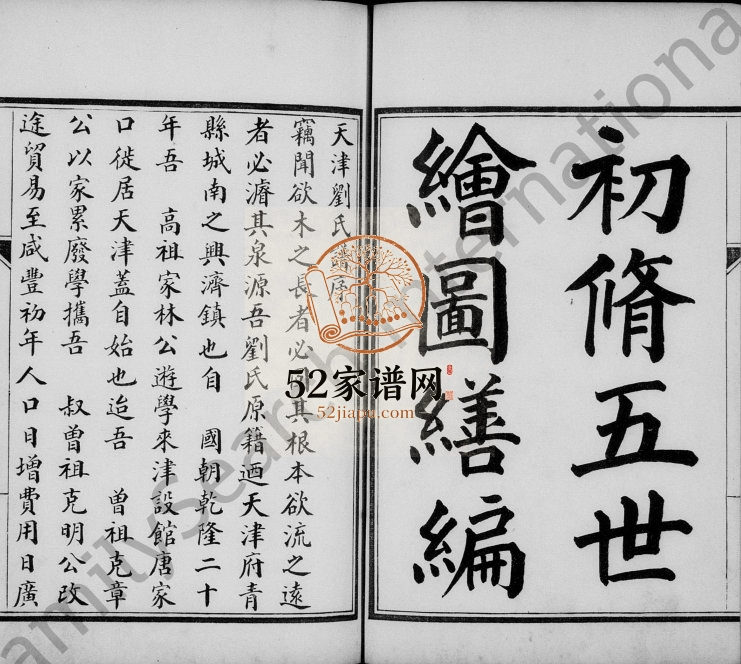 初脩五世
繪圖繕編
天津劉氏譜序
竊聞欲木之長者必固其根本欲流之遠
者必濬其泉源吾劉氏原籍迺天津府青
縣城南之興濟鎮也自 國朝乾隆二十
年吾 高祖家林公遊學來津設館唐家
口徙居天津蓋自始也迨吾 曾祖克章
公以家累廢學攜吾 叔曾祖克明公改
途貿易至咸豐初年人口日增費用日廣
52家谱网
52jiapu.com
FamilySearch International